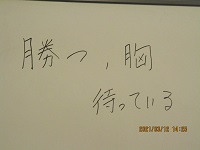 勝つ,胸
待っている
2021/03/12 14:23